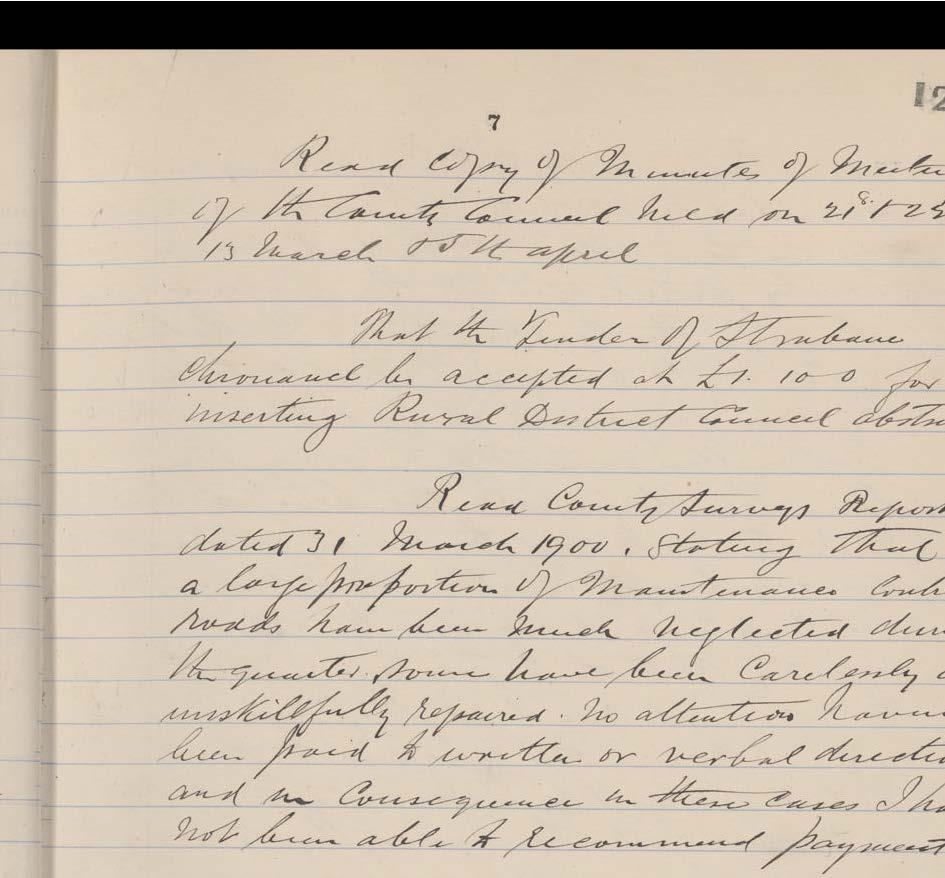 12
7
Read Copy of Minutes of Meetin
of the County Council held on 21st & 28
13 March & 5th april
That the Tender of Strabane
Chronicel be accepted at £1. 10 0 for
inserting Rural District Council abstra
Read County Surveys Report
dated 31 March 1900. Stating that
a large proportion of Maintenance Contr
roads have been much neglected durin
the quarter. some have been Carelessly a
unskillfully repaired. No attention havin
been paid to written or verbal directio
and in Consequence in these cases I ha
not been able to recommend payment